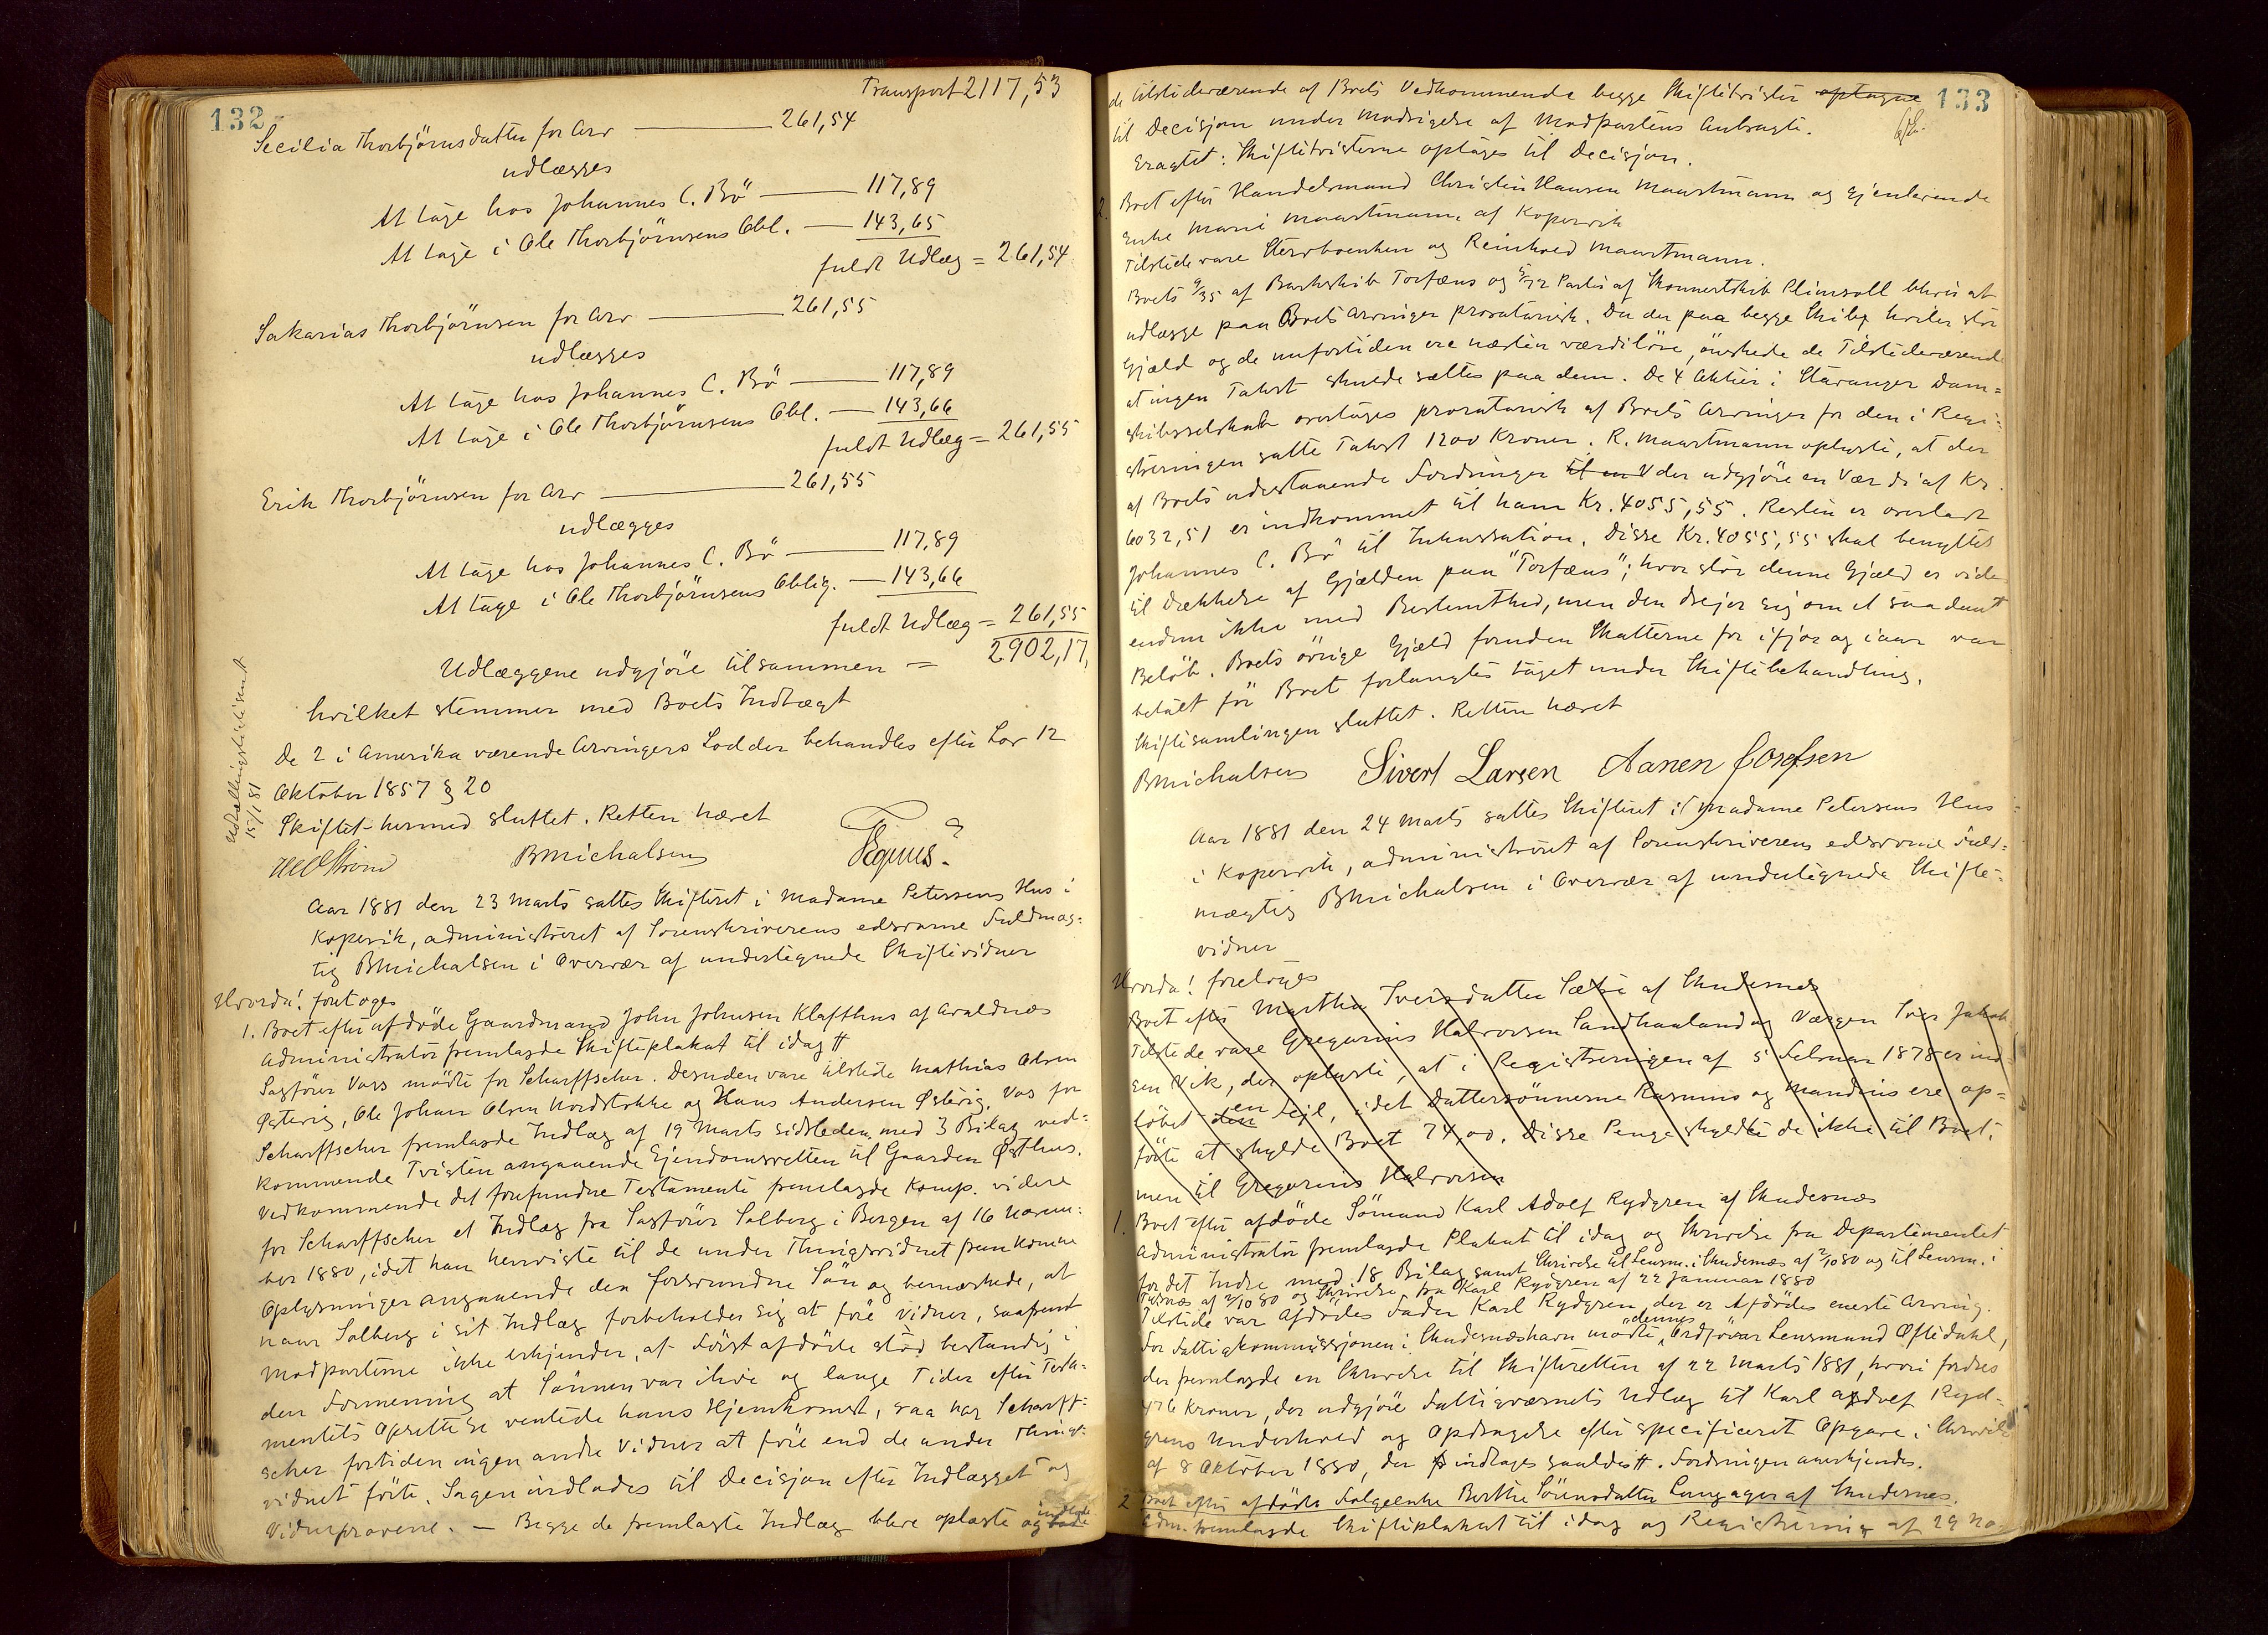 132
Transport 2117,53
Secilia Thorbjörnsdatter for Arv — 261,54
udlægges
At tage hos Johannes C. Bö — 117,89
At tage i Ole Thorbjörnsens Obl. — 143,65
fuldt Udlæg = 261,54
Sakarias Thorbjörnsen for Arv — 261,55
udlægges
At tage hos Johannes C. Bö — 117,89
At tage i Ole Thorbjörnsens Obl. — 143,66
fuldt Udlæg = 261,55
Erik Thorbjörnsen for Arv — 261,55
udlægges
At tage hos Johannes C. Bö — 117,89
At tage i Ole Thorbjörnsens Oblig. — 143,66
fuldt Udlæg = 261,55
Udlæggene udgjöre tilsammen = 2902,17,
hvilket stemmer med Boets Indtægt
De 2 i Amerika værende Arvingers Lodder behandles efter Lov 12
Oktober 1857 § 20
Skiftet hermed sluttet. Retten hævet
BMichalsen
15/1 81
Aar 1881 den 23 Marts sattes Skifteret i Madame Petersens Hus i
Kopervik, administreret af Sorenskriverens edsvorne Fuldmæg=
tig BMichalsen i Overvær af undertegnede Skiftevidner
Hvorda! foretoges
1. Boet efter afdöde Gaardmand John Johnsen Klafthus af Avaldnæs
Administrator fremlagde Skifteplakat til idag #
Sagförer Vogs mödte for Scharffscher. Desuden vare tilstede Mathias Olsen
Østevig, Ole Johan Olsen Nordstokke og Hans Andersen Østevig. Vos for
Scharffscher fremlagde Indlæg af 19 Marts sidstleden med 3 Bilag ved=
kommende Tvisten angaaende Ejendomsretten til Gaarden Østhus.
Vedkommende det forefundne Testamente fremlagde Komp. videre
for Scharffscher et Indlæg fra Sagförer Solberg i Bergen af 16 Novem=
ber 1880, idet han henviste til de under Thingsvidnet fremkomne
Oplysninger angaaende den forsvundne Sön og bemærkede, at
naar Solberg i sit Indlæg forbeholder sig at före Vidner, saafremt
Modparterne ikke erkjender, at Först afdöde stod bestandig i
den Formening at Sönnen var ilive og lange Tider efter Testa=
mentets Oprettelse ventede hans Hjemkomst, saa har Scharff=
scher fortiden ingen andre Vidner at före end de under Things=
vidnet förte. Sagen indlades til Decisjon efter Indlægget og
Vidneprovene. — Begge de fremlagte Indlæg bleve oplæste og indlode
133
de tilstedeværende af Boets Vedkommende begge Skiftetvister optagne
til Decisjon under Modsigelse af Modpartens Anbragte.
Eragtet: Skiftetvisterne optages til Decisjon.
2. Boet efter Handelsmand Christen Hansen Maartmann og gjenlevende
Enke Marie Maartmann af Kopervik
Tilstede vare Stervboenken og Reinhold Maartmann.
Boets 9/35 af Barkskib Torfæus og 5/72 Parter af Skonnertskib Plimsoll bleve at
udlægge paa Boets Arvinger proratarisk. Da der paa begge Skibe hviler stor
Gjæld og de nufortiden ere næsten værdilöse, önskede de Tilstedeværende
at ingen Takst skulde sættes paa dem. De 4 Aktier i Stavanger Dam=
skibsselskab overtages proratarisk af Boets Arvinger for den i Regi=
streringen satte Takst 1200 Kroner. R. Maartmann oplyste, at der
af Boets udestaaende Fordringer til en V der udgjöre en Værdi af Kr.
6032,51 er indkommet til ham Kr. 4055,55. Resten er overladt
Johannes C. Bö til Inkassation. Disse Kr. 4055,55 skal benyttes
til Dækkelse af Gjælden paa "Torfæus"; hvor stor denne Gjæld er vides
endnu ikke med Bestemthed, men den drejer sig om et saadant
Beløb. Boets övrige Gjæld foruden Skatterne for ifjor og iaar var
betalt för Boet forlangtes taget under Skiftebehandling.
Skiftesamlingen sluttet. Retten hævet
BMichalsen Sivert Larsen Aanen Josefsen
Aar 1881 den 24 Marts sattes Skifteret i Madame Petersens Hus
i Kopervik, administreret af Sorenskriverens edsvorne Fuld=
mægtig BMichalsen i Overvær af undertegnede Skifte=
vidner
Hvorda! foretoges
Boet efter Martha Iversdatter Sæbe af Skudesnes
Tilstede vare Gregorius Halvorsen Sandhaaland og Værgen Iver Jakob
sen Vik, der oplyste, at i Registreringen af 5 Februar 1878 er ind=
löbet den en Fejl, idet Dattersönnerne Rasmus og Mandius ere op=
förte at skylde Boet 74,00. Disse Penge skyldte de ikke til Boet,
men til Gregorius Halvorsen
1. Boet efter afdöde Sömand Karl Adolf Rydgren af Skudesnæs
Administrator fremlagde Plakat til idag og Skrivelse fra Departementet
for det Indre med 18 Bilag samt Skrivelse til Lensm. i Skudesnæs af 2/10 80 og til Lensm. i
af 2/10 80 og Skrivelse fra Karl Rydgren af 22 Januar 1880
Tilstede var Afdödes Fader Karl Rydgren, der er Afdödes eneste Arving.
For Fattigkommissjonen i Skudesnæshavn mödte dennes Ordförer Lensmand Øftedahl,
der fremlagde en Skrivelse til Skifteretten af 22 Marts 1881, hvori fordres
Kroner, der udgjöre Fattigvæsenets Udlæg til Karl Adolf Ryd=
grens Underhold og Opdragelse efter specificeret Opgave i Skrivelse
af 8 Oktober 1880, der indtages saaledes #. Fordringen anerkjendes.
2 Boet efter afdöde Folgeenke Berthe Sörensdatter Langager af Skudesnes.
Adm. fremlagde Skifteplakat til idag og Registrering af 29 No=